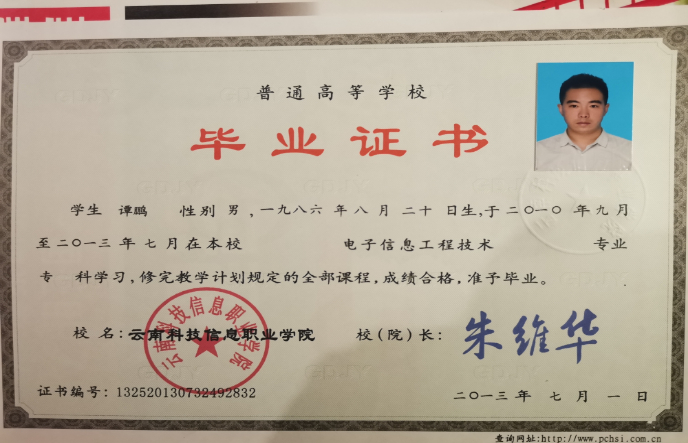 普通高等学校
毕业证书
学生 谭鹏 性别 男，一九八六 年 八 月 二十 日生，于 二〇一〇 年 九 月
至 二〇一三 年 七 月 在 本 校 电子信息工程技术 专业
专 科学习，修完教学计划规定的全部课程，成绩合格，准予毕业。
校 名：云南科技信息职业学院 校（院）长：朱维华
云南科技信息职业学院
证书编号：132520130732492832 二〇一三 年 七 月 一 日
查询网址:http://www.pchsi.com.cn